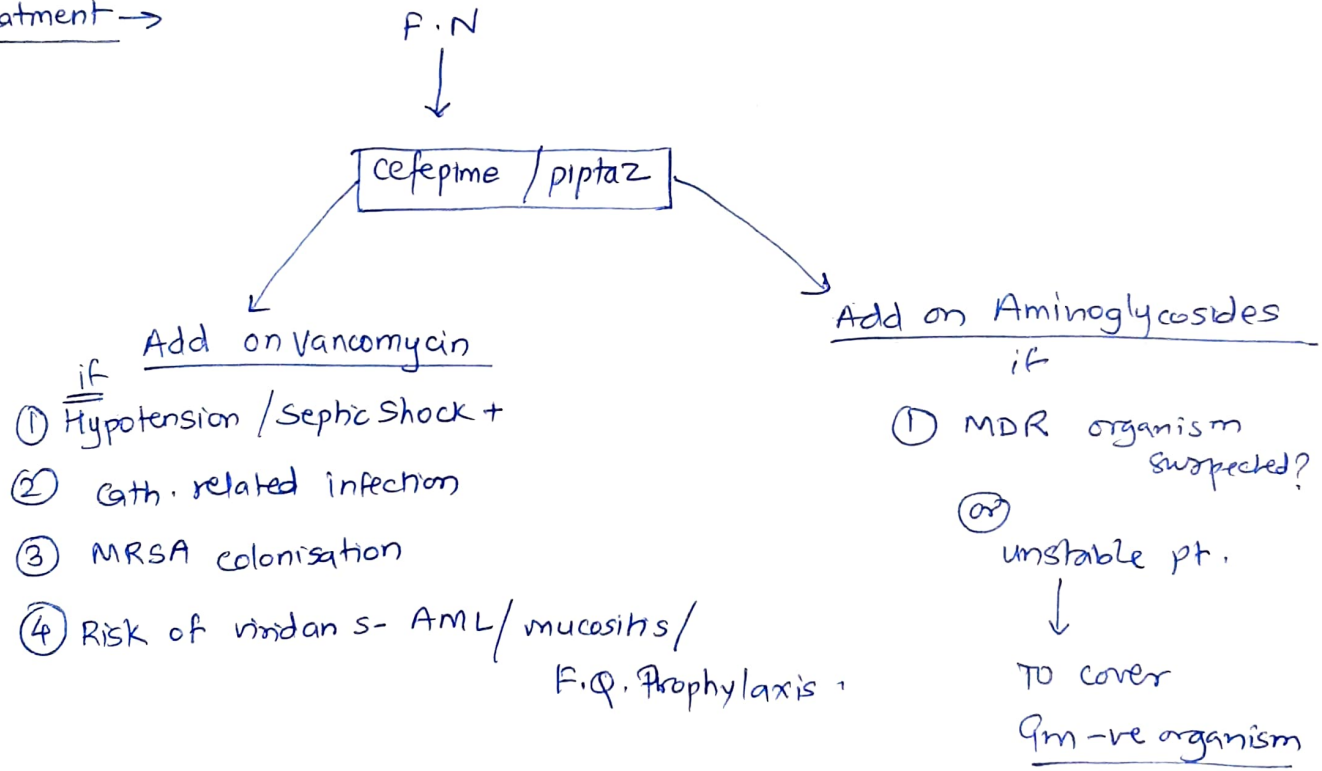 atment →
F.N
cefepime / piptaz
Add on Vancomycin
if
① Hypotension / Septic Shock +
② Cath. related infection
③ MRSA colonisation
④ Risk of viridans - AML / mucositis /
F.Q. Prophylaxis.
Add on Aminoglycosides
if
① MDR organism
suspected?
or
unstable pt.
↓
TO cover
Gm -ve organism